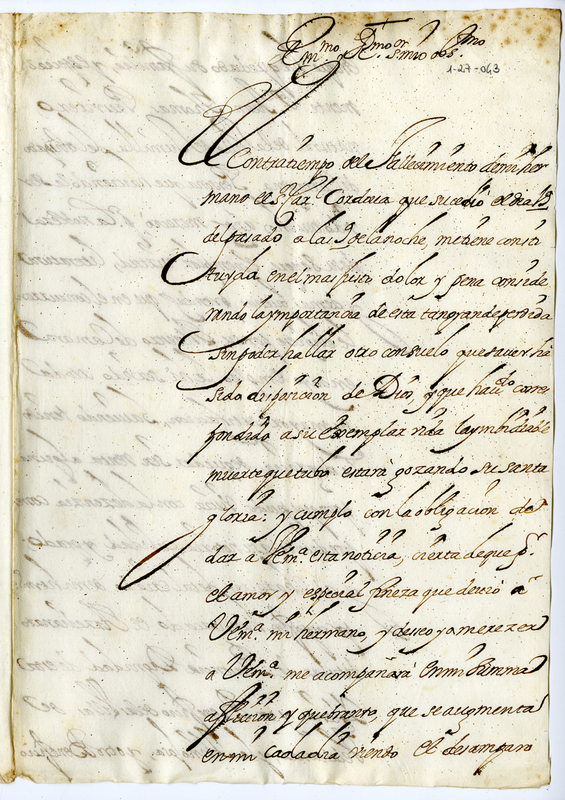 Em.mo R.mo S.or mio oss.mo
1-27-043
El Contratiempo del fallesimiento de mi her
mano el S.r Car. Cordova que susedió el dia 19
del pasado a las 9 de la noche, me tiene consti
tuyda en el mas justo dolor y pena conside
rando la ymportancia de esta tan grande perdida
sin poder hallar otro consuelo que saver ha
sido disposicion de Dios, y que hav.do corres
pondido a su exemplar vida la ymbidiable
muerte que tubo estará gozando su santa
gloria: y cumplo con la obligacion de
dar a VEm.a esta noticia, cierta de que p.r
el amor y especial fineza que devió a
VEm.a mi hermano, y deseo yo merezer
a VEm.a me acompañará en mi summa
afliccion y quebranto, que se augmenta
en mi cada dia viendo el desamparo